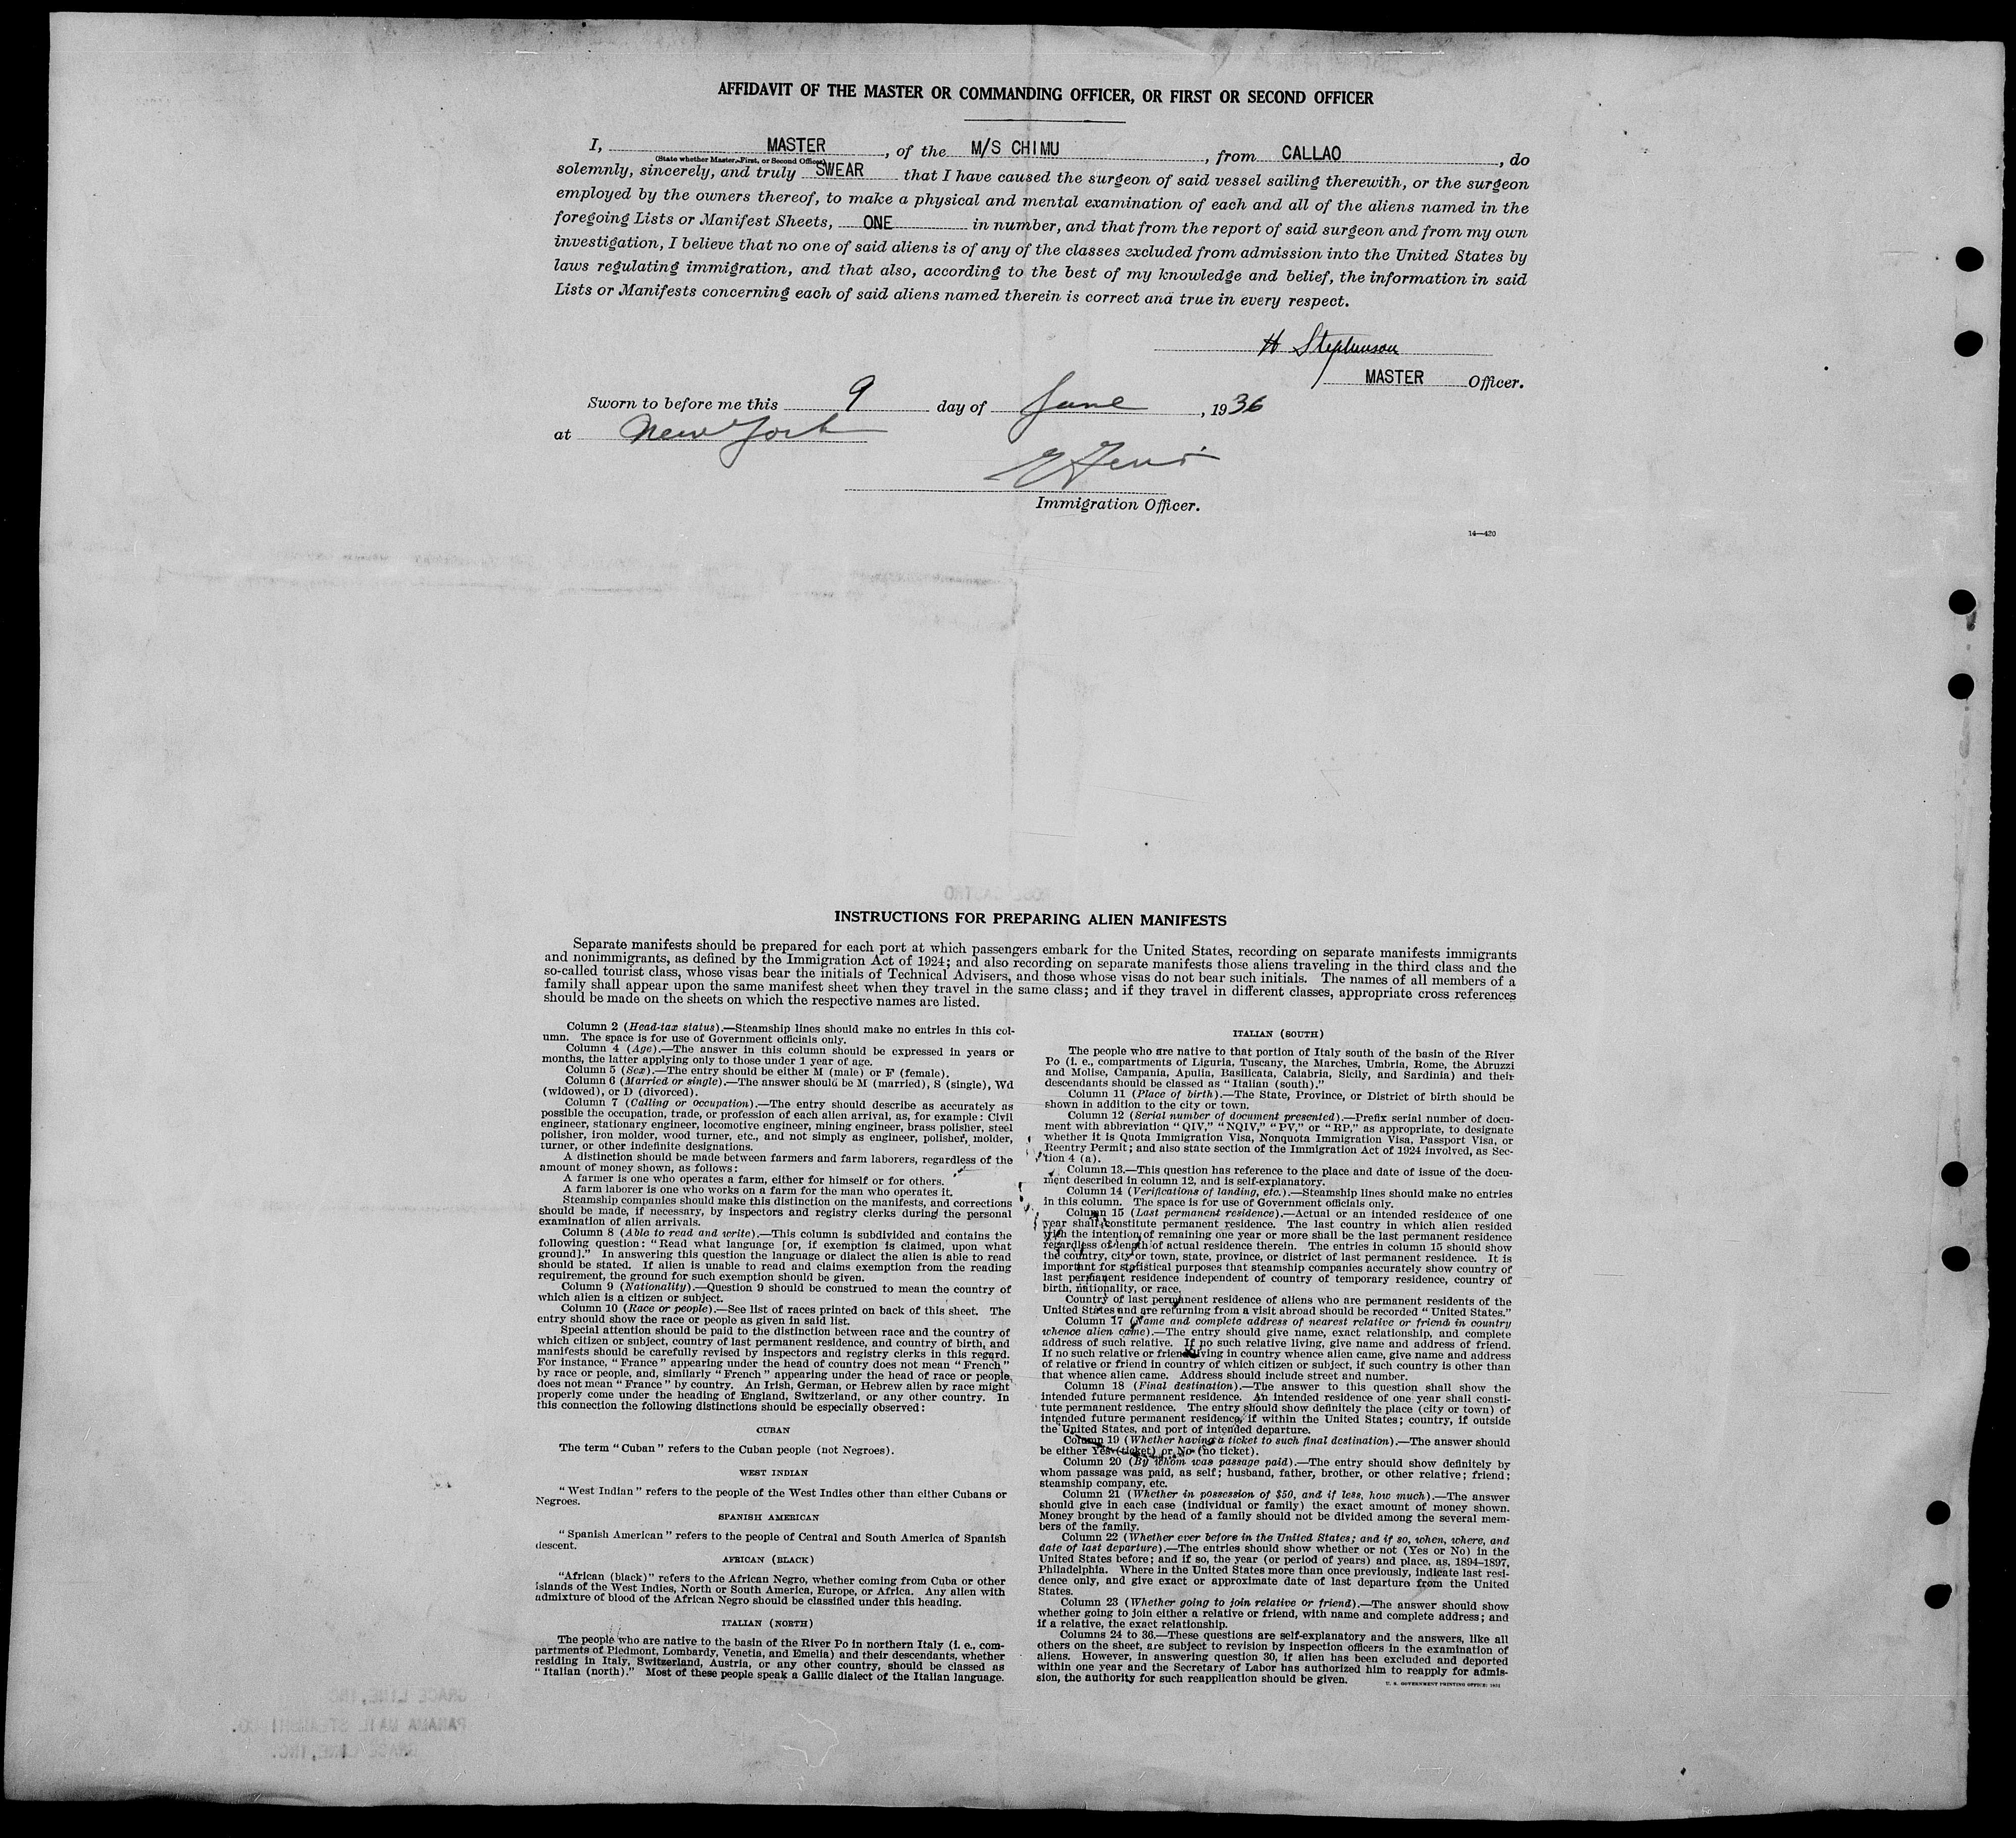 AFFIDAVIT OF THE MASTER OR COMMANDING OFFICER, OR FIRST OR SECOND OFFICER
I, MASTER, of the M/S CHIMU, from CALLAO, do
(State whether Master, First, or Second Officer)
solemnly, sincerely, and truly SWEAR that I have caused the surgeon of said vessel sailing therewith, or the surgeon
employed by the owners thereof, to make a physical and mental examination of each and all of the aliens named in the
foregoing Lists or Manifest Sheets, ONE in number, and that from the report of said surgeon and from my own
investigation, I believe that no one of said aliens is of any of the classes excluded from admission into the United States by
laws regulating immigration, and that also, according to the best of my knowledge and belief, the information in said
Lists or Manifests concerning each of said aliens named therein is correct and true in every respect.
H Stephenson
MASTER Officer.
Sworn to before me this 9 day of June, 1936
at New York
Immigration Officer.
14—420
INSTRUCTIONS FOR PREPARING ALIEN MANIFESTS
Separate manifests should be prepared for each port at which passengers embark for the United States, recording on separate manifests immigrants
and nonimmigrants, as defined by the Immigration Act of 1924; and also recording on separate manifests those aliens traveling in the third class and the
so-called tourist class, whose visas bear the initials of Technical Advisers, and those whose visas do not bear such initials. The names of all members of a
family shall appear upon the same manifest sheet when they travel in the same class; and if they travel in different classes, appropriate cross references
should be made on the sheets on which the respective names are listed.
Column 2 (Head-tax status).—Steamship lines should make no entries in this col-
umn. The space is for use of Government officials only.
Column 4 (Age).—The answer in this column should be expressed in years or
months, the latter applying only to those under 1 year of age.
Column 5 (Sex).—The entry should be either M (male) or F (female).
Column 6 (Married or single).—The answer should be M (married), S (single), Wd
(widowed), or D (divorced).
Column 7 (Calling or occupation).—The entry should describe as accurately as
possible the occupation, trade, or profession of each alien arrival, as, for example: Civil
engineer, stationary engineer, locomotive engineer, mining engineer, brass polisher, steel
polisher, iron molder, wood turner, etc., and not simply as engineer, polisher, molder,
turner, or other indefinite designations.
A distinction should be made between farmers and farm laborers, regardless of the
amount of money shown, as follows:
A farmer is one who operates a farm, either for himself or for others.
A farm laborer is one who works on a farm for the man who operates it.
Steamship companies should make this distinction on the manifests, and corrections
should be made, if necessary, by inspectors and registry clerks during the personal
examination of alien arrivals.
Column 8 (Able to read and write).—This column is subdivided and contains the
following question: "Read what language [or, if exemption is claimed, upon what
ground]." In answering this question the language or dialect the alien is able to read
should be stated. If alien is unable to read and claims exemption from the reading
requirement, the ground for such exemption should be given.
Column 9 (Nationality).—Question 9 should be construed to mean the country of
which alien is a citizen or subject.
Column 10 (Race or people).—See list of races printed on back of this sheet. The
entry should show the race or people as given in said list.
Special attention should be paid to the distinction between race and the country of
which citizen or subject, country of last permanent residence, and country of birth, and
manifests should be carefully revised by inspectors and registry clerks in this regard.
For instance, "France" appearing under the head of country does not mean "French"
by race or people, and, similarly "French" appearing under the head of race or people,
does not mean "France" by country. An Irish, German, or Hebrew alien by race might
properly come under the heading of England, Switzerland, or any other country. In
this connection the following distinctions should be especially observed:
CUBAN
The term "Cuban" refers to the Cuban people (not Negroes).
WEST INDIAN
"West Indian" refers to the people of the West Indies other than either Cubans or
Negroes.
SPANISH AMERICAN
"Spanish American" refers to the people of Central and South America of Spanish
descent.
AFRICAN (BLACK)
"African (black)" refers to the African Negro, whether coming from Cuba or other
islands of the West Indies, North or South America, Europe, or Africa. Any alien with
admixture of blood of the African Negro should be classified under this heading.
ITALIAN (NORTH)
The people who are native to the basin of the River Po in northern Italy (i. e., com-
partments of Piedmont, Lombardy, Venetia, and Emelia) and their descendants, whether
residing in Italy, Switzerland, Austria, or any other country, should be classed as
"Italian (north)." Most of these people speak a Gallic dialect of the Italian language.
ITALIAN (SOUTH)
The people who are native to that portion of Italy south of the basin of the River
Po (i. e., compartments of Liguria, Tuscany, the Marches, Umbria, Rome, the Abruzzi
and Molise, Campania, Apulia, Basilicata, Calabria, Sicily, and Sardinia) and their
descendants should be classed as "Italian (south)."
Column 11 (Place of birth).—The State, Province, or District of birth should be
shown in addition to the city or town.
Column 12 (Serial number of document presented).—Prefix serial number of docu-
ment with abbreviation "QIV," "NQIV," "PV," or "RP," as appropriate, to designate
whether it is Quota Immigration Visa, Nonquota Immigration Visa, Passport Visa, or
Reentry Permit; and also state section of the Immigration Act of 1924 involved, as Sec-
tion 4 (a).
Column 13.—This question has reference to the place and date of issue of the docu-
ment described in column 12, and is self-explanatory.
Column 14 (Verifications of landing, etc.).—Steamship lines should make no entries
in this column. The space is for use of Government officials only.
Column 15 (Last permanent residence).—Actual or an intended residence of one
year shall constitute permanent residence. The last country in which alien resided
with the intention of remaining one year or more shall be the last permanent residence
regardless of length of actual residence therein. The entries in column 15 should show
the country, city or town, state, province, or district of last permanent residence. It is
important for statistical purposes that steamship companies accurately show country of
last permanent residence independent of country of temporary residence, country of
birth, nationality, or race.
Country of last permanent residence of aliens who are permanent residents of the
United States and are returning from a visit abroad should be recorded "United States."
Column 17 (Name and complete address of nearest relative or friend in country
whence alien came).—The entry should give name, exact relationship, and complete
address of such relative. If no such relative living, give name and address of friend.
If no such relative or friend living in country whence alien came, give name and address
of relative or friend in country of which citizen or subject, if such country is other than
that whence alien came. Address should include street and number.
Column 18 (Final destination).—The answer to this question shall show the
intended future permanent residence. An intended residence of one year shall consti-
tute permanent residence. The entry should show definitely the place (city or town) of
intended future permanent residence, if within the United States; country, if outside
the United States, and port of intended departure.
Column 19 (Whether having a ticket to such final destination).—The answer should
be either Yes (ticket) or No (no ticket).
Column 20 (By whom was passage paid).—The entry should show definitely by
whom passage was paid, as self; husband, father, brother, or other relative; friend;
steamship company, etc.
Column 21 (Whether in possession of $50, and if less, how much).—The answer
should give in each case (individual or family) the exact amount of money shown.
Money brought by the head of a family should not be divided among the several mem-
bers of the family.
Column 22 (Whether ever before in the United States; and if so, when, where, and
date of last departure).—The entries should show whether or not (Yes or No) in the
United States before; and if so, the year (or period of years) and place, as, 1894–1897,
Philadelphia. Where in the United States more than once previously, indicate last resi-
dence only, and give exact or approximate date of last departure from the United
States.
Column 23 (Whether going to join relative or friend).—The answer should show
whether going to join either a relative or friend, with name and complete address; and
if a relative, the exact relationship.
Columns 24 to 36.—These questions are self-explanatory and the answers, like all
others on the sheet, are subject to revision by inspection officers in the examination of
aliens. However, in answering question 30, if alien has been excluded and deported
within one year and the Secretary of Labor has authorized him to reapply for admis-
sion, the authority for such reapplication should be given.
U. S. GOVERNMENT PRINTING OFFICE: 1931
GRACE LINE, INC.
PANAMA MAIL STEAMSHIP CO.
GRACE LINE, INC.